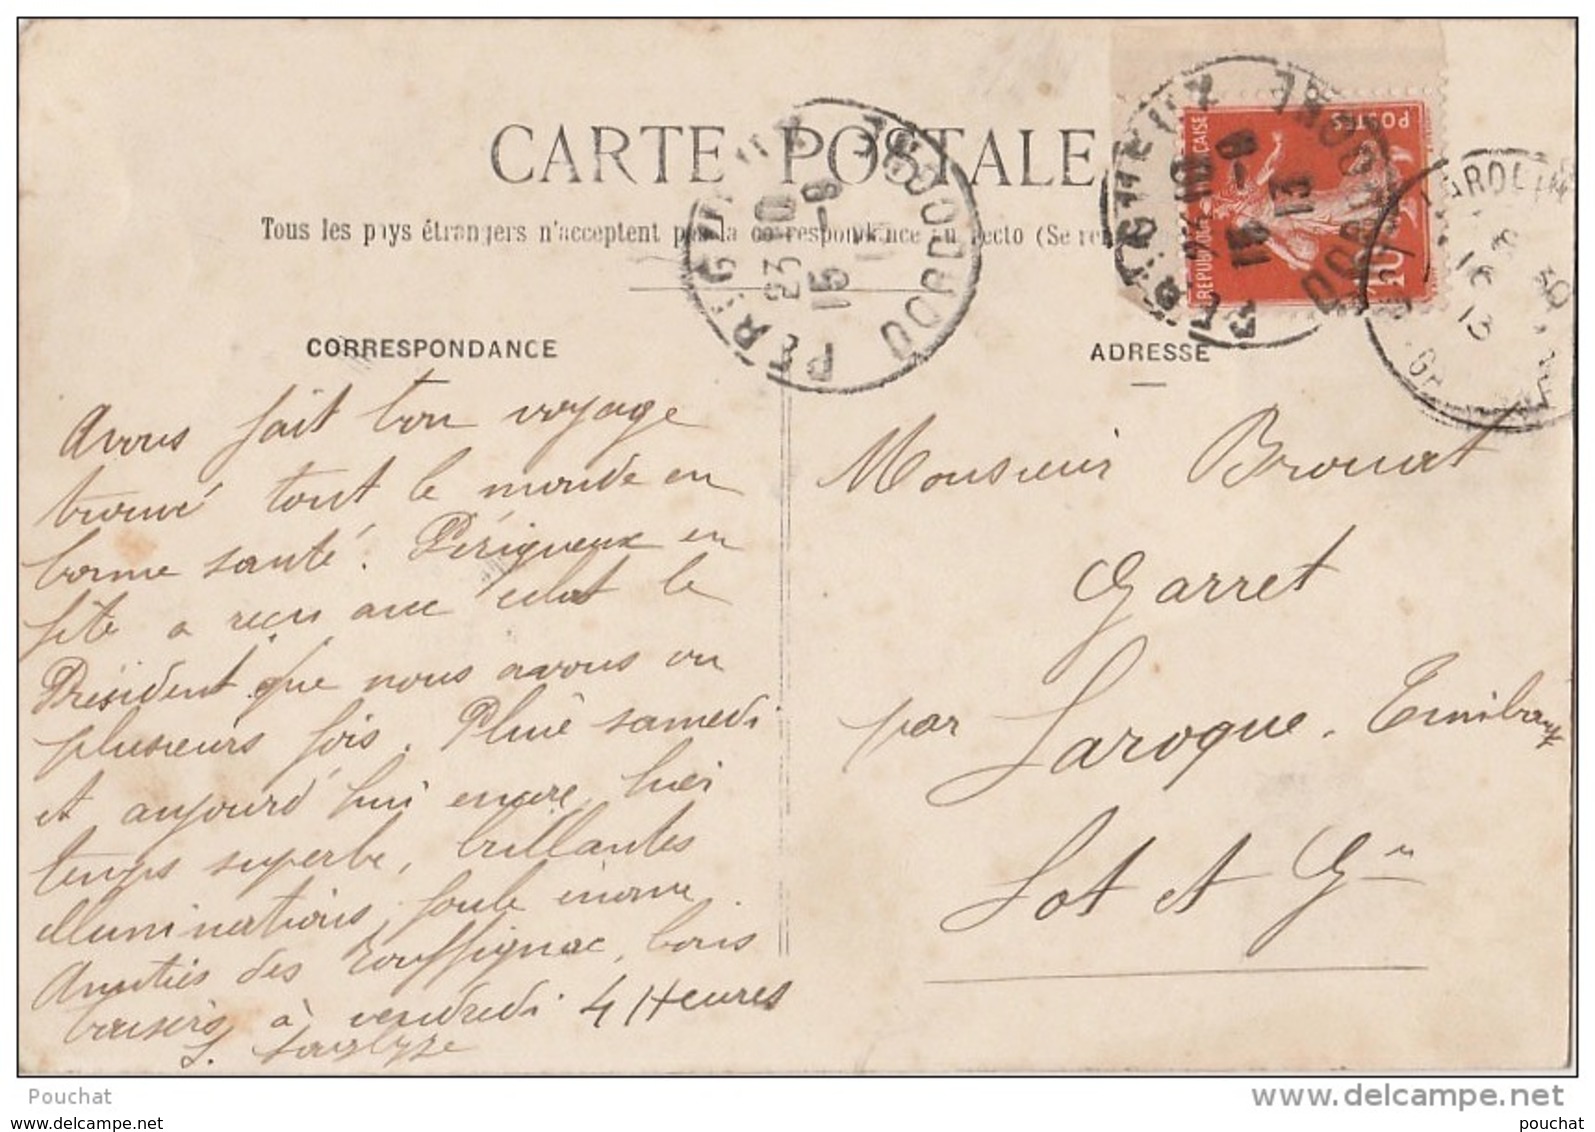 CARTE POSTALE
Tous les pays étrangers n'acceptent pas la correspondance au recto (Se ren
CORRESPONDANCE
Avons fait bon voyage
trouvé tout le monde en
bonne santé. Périgueux en
fête a reçu avec éclat le
Président que nous avons vu
plusieurs fois. Pluie samedi
et aujourd'hui encore, hier
temps superbe, brillantes
illuminations, foule énorme
Amitiés des Rouffignac, bons
baisers à vendredi 4 Heures
ADRESSE
Monsieur Brouat
Garret
par Laroque. Timbaut
Lot et Gne
REPUBLIQUE FRANÇAISE
POSTES
10
PERIGUEUX
DORDOGNE
23 10
15 -8
PERIGUEUX
DORDOGNE
15 -8
13
16
13
Pouchat
www.delcampe.net
www.delcampe.net
pouchat